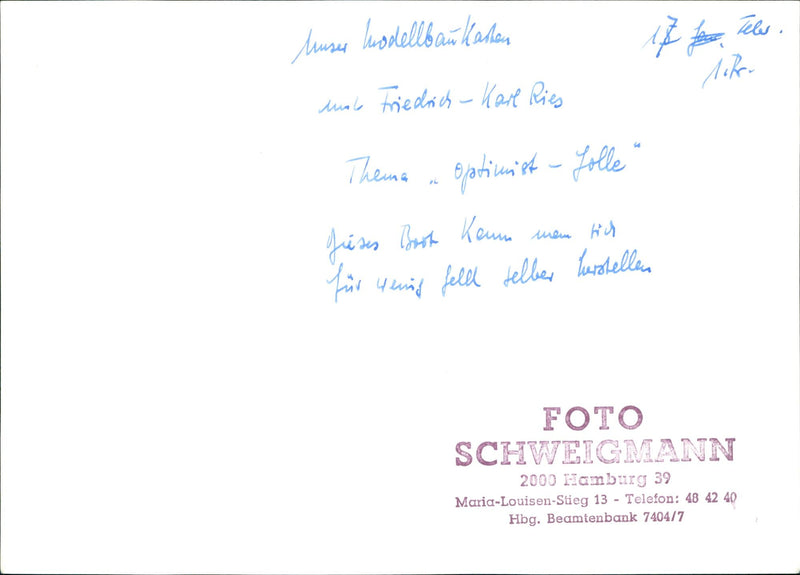 Unser Modellbaukasten
17 Febr.
1. Pr.
mit Friedrich - Karl Ries
Thema „Optimist - Jolle"
Dieses Boot kann man sich
für wenig Geld selber herstellen
FOTO
SCHWEIGMANN
2000 Hamburg 39
Maria-Louisen-Stieg 13 - Telefon: 48 42 40
Hbg. Beamtenbank 7404/7